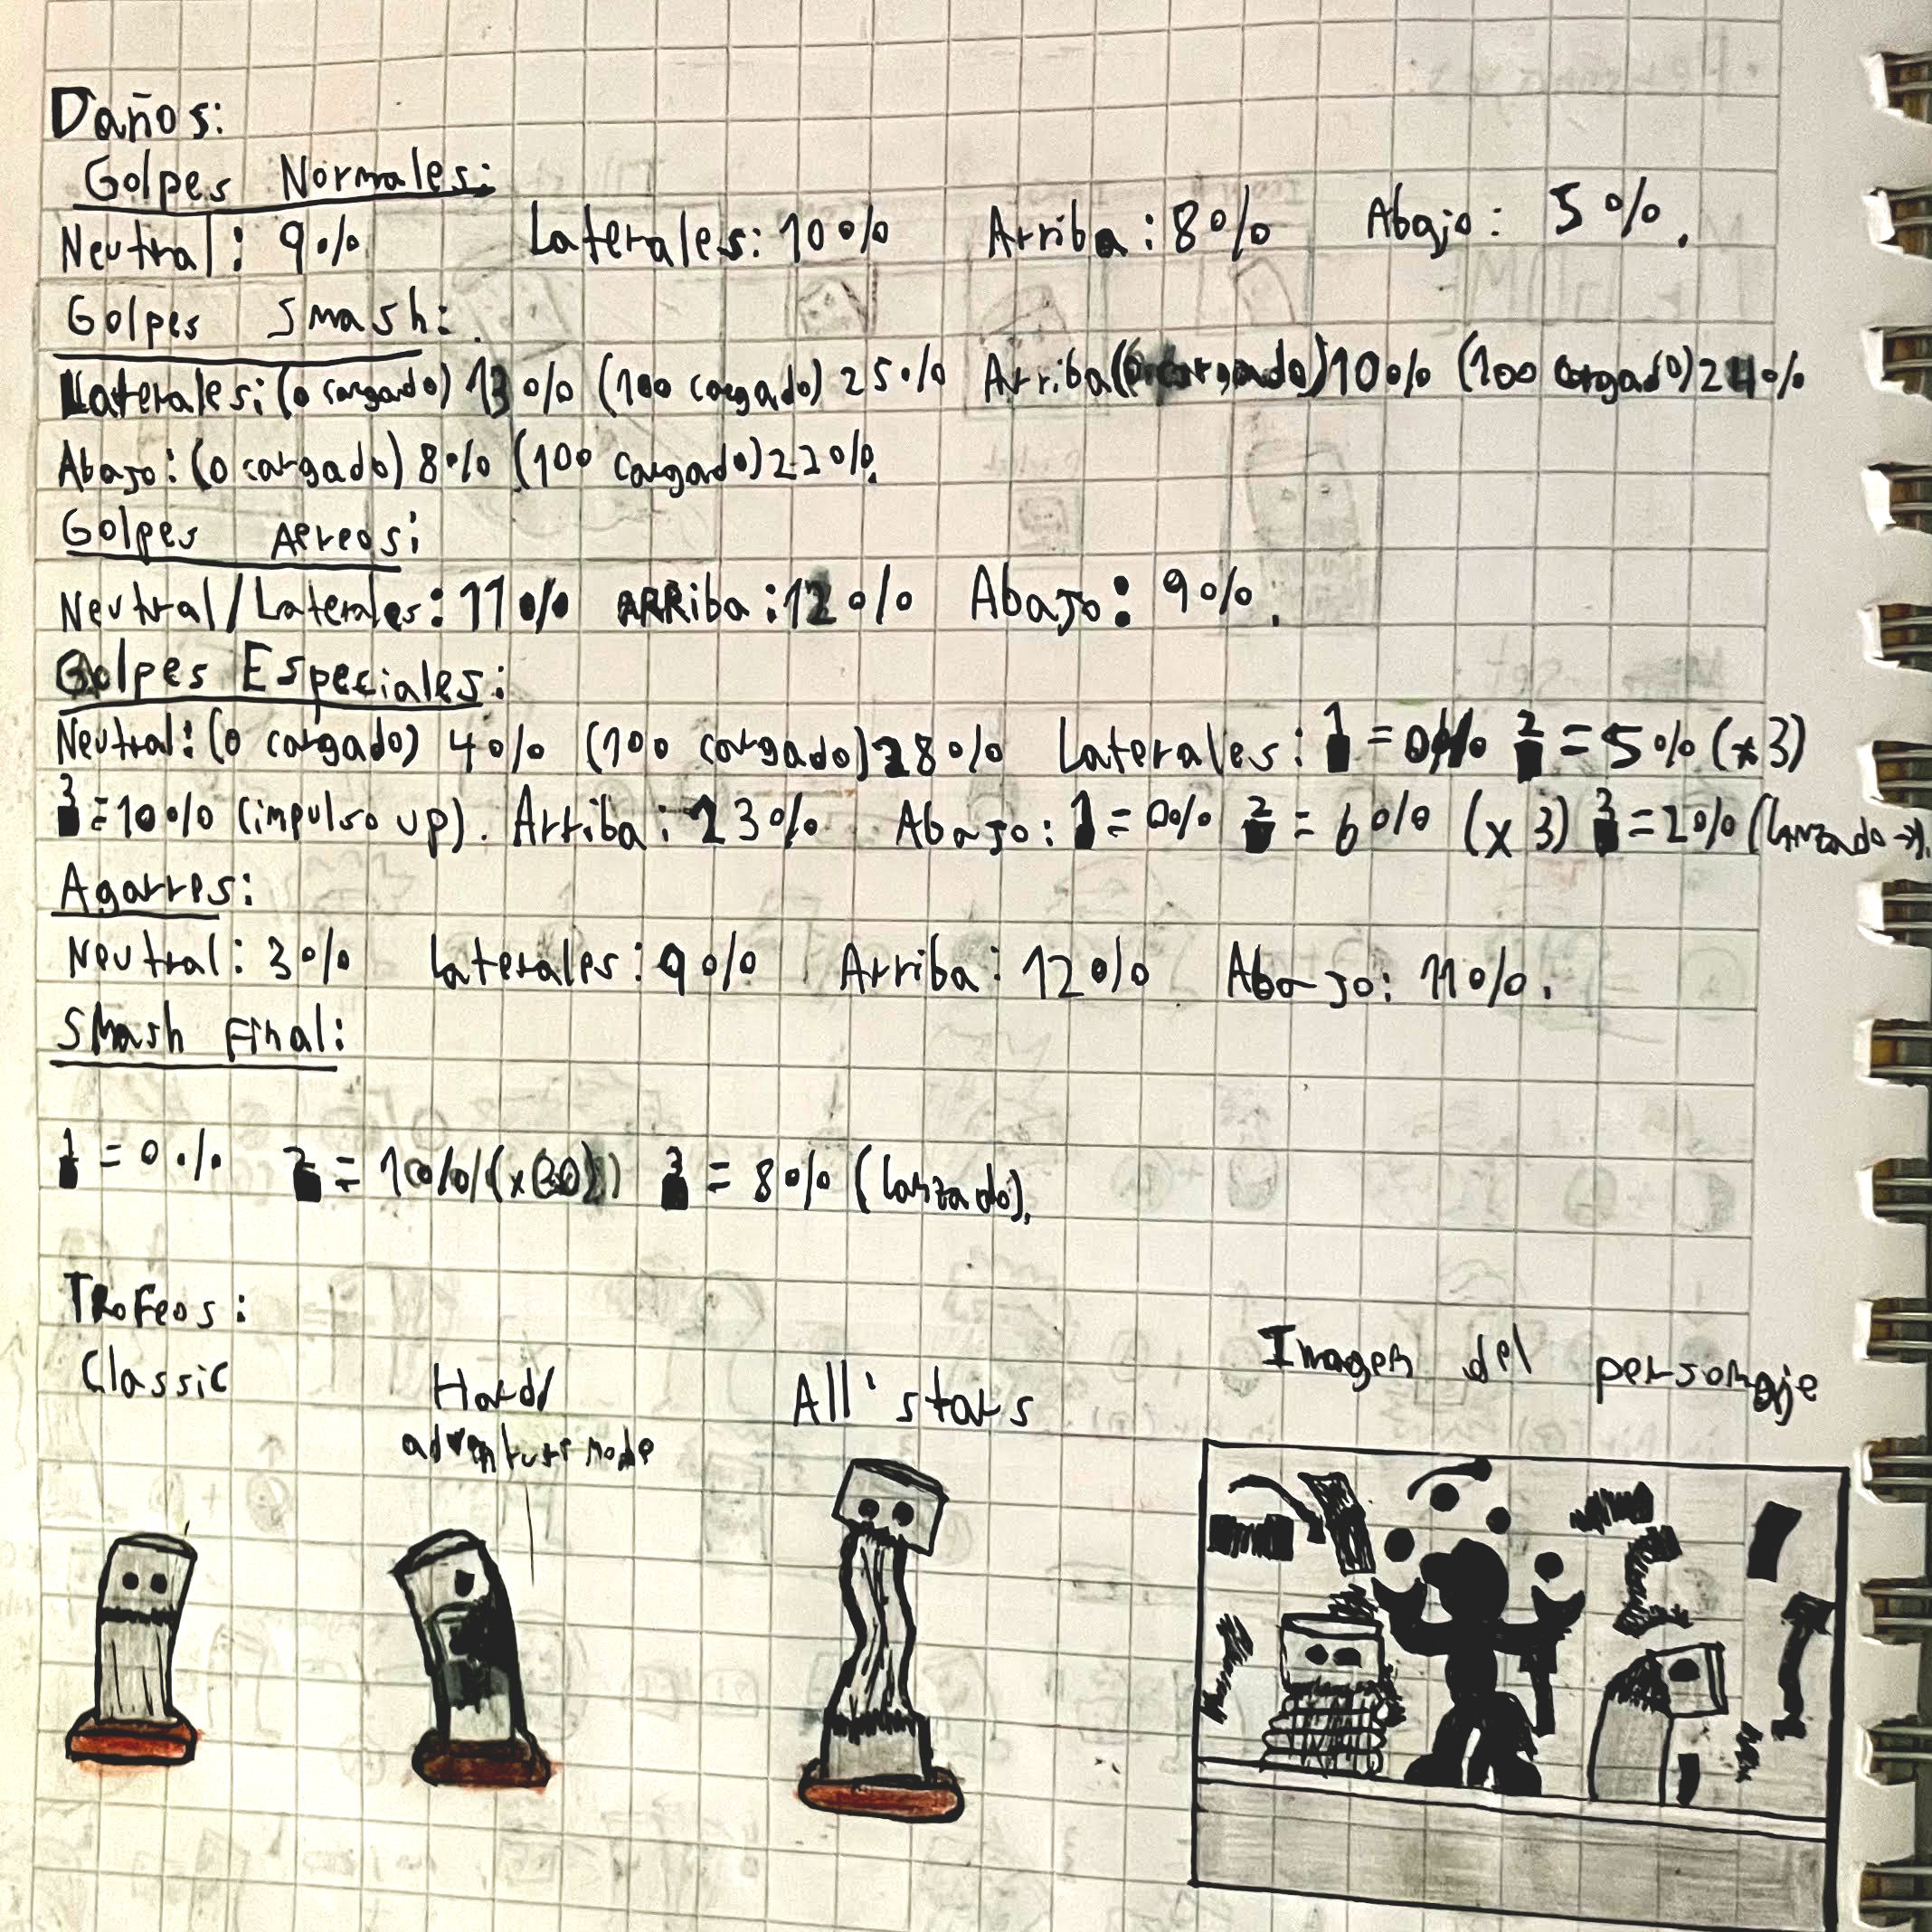 Daños:
Golpes Normales:
Neutral: 9% Laterales: 10% Arriba: 8% Abajo: 5%.
Golpes Smash:
Laterales: (0 cargado) 13% (100 cargado) 25% Arriba (0 cargado) 10% (100 cargado) 24%
Abajo: (0 cargado) 8% (100 cargado) 22%.
Golpes Aereos:
Neutral/Laterales: 11% ARRiba: 12% Abajo: 9%.
Golpes Especiales:
Neutral: (0 cargado) 4% (100 cargado) 28% Laterales: 1 = 0% 2 = 5% (x3)
3 = 10% (impulso up). Arriba: 23% Abajo: 1 = 0% 2 = 6% (x3) 3 = 2% (lanzado →).
Agarres:
Neutral: 3% Laterales: 9% Arriba: 12% Abajo: 11%.
Smash Final:
1 = 0% 2 = 3 = 8% (lanzado).
Trofeos:
Classic Hard All'stars Imagen del personaje
adventure mode